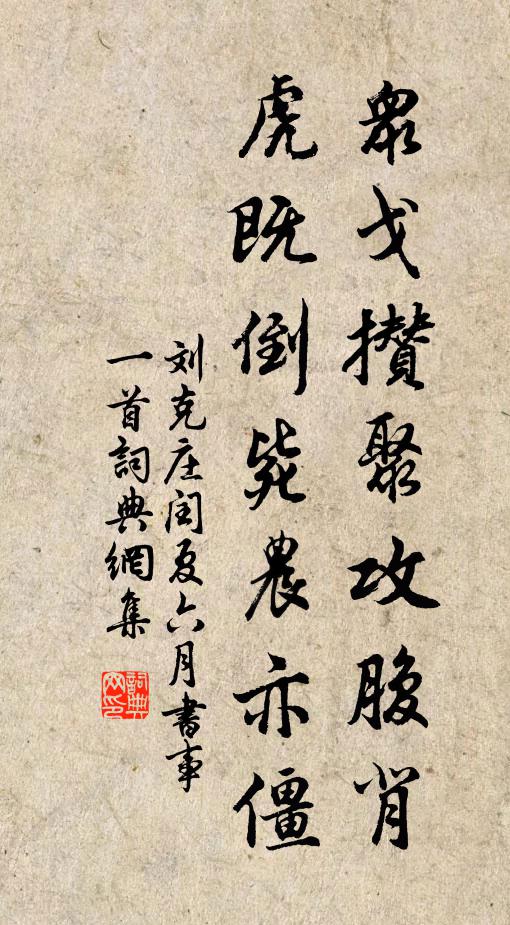 眾戈攅聚攻腹背
虎既倒毙農亦僵
刘克庄闰夏六月書事
一首詞典網集
詞典
网印